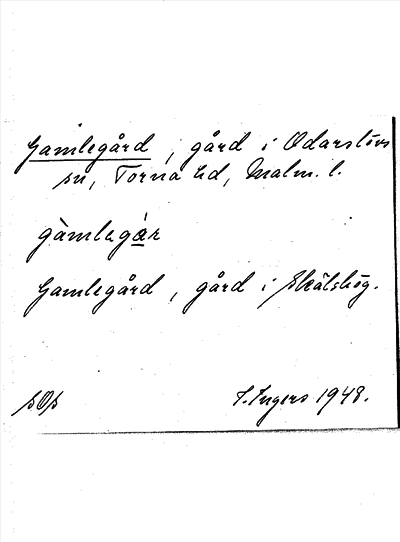 Gamlegård, gård i Odarslövs
sn, Torna hd, Malm. l.
gàmlegár
Gamlegård, gård i Skälshög.
sOp
I. Ingers 1948.